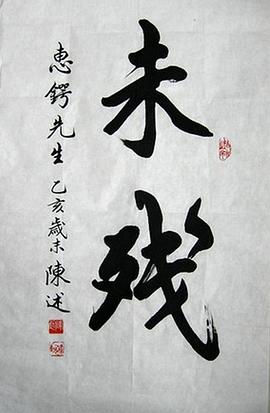 未残
惠鍔先生 乙亥歲末 陳述